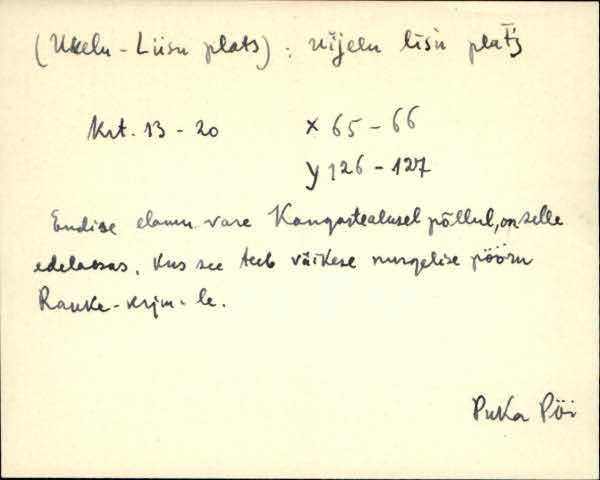 (Ukelu-Liisu plats) : uijelu lisu plats
Krt. 13 - 20 x 65 - 66
y 126 - 127
Endise elamu vare Kangastealusel põllul, on selle
edelaosas, kus see teeb väikese nurgelise pööru
Rauke-krjm-le.
Puka Pöi